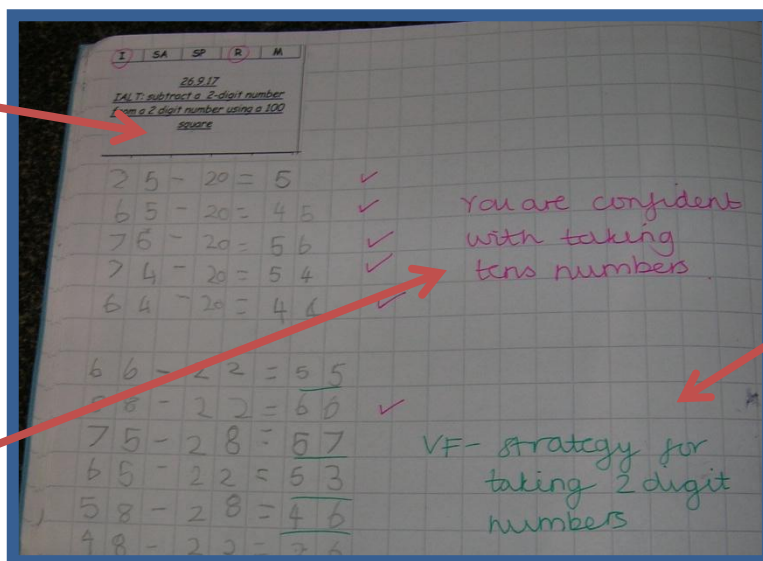 I SA SP R M
26.9.17
IALT: subtract a 2-digit number
from a 2 digit number using a 100
square
25 - 20 = 5 ✓
65 - 20 = 45 ✓
76 - 20 = 56 ✓
74 - 20 = 54 ✓
64 - 20 = 44 ✓
You are confident
with taking
tens numbers.
66 - 22 = 55
8 - 22 = 66 ✓
75 - 28 = 57
65 - 22 = 53
58 - 28 = 46
48 - 22 =
VF - strategy for
taking 2 digit
numbers